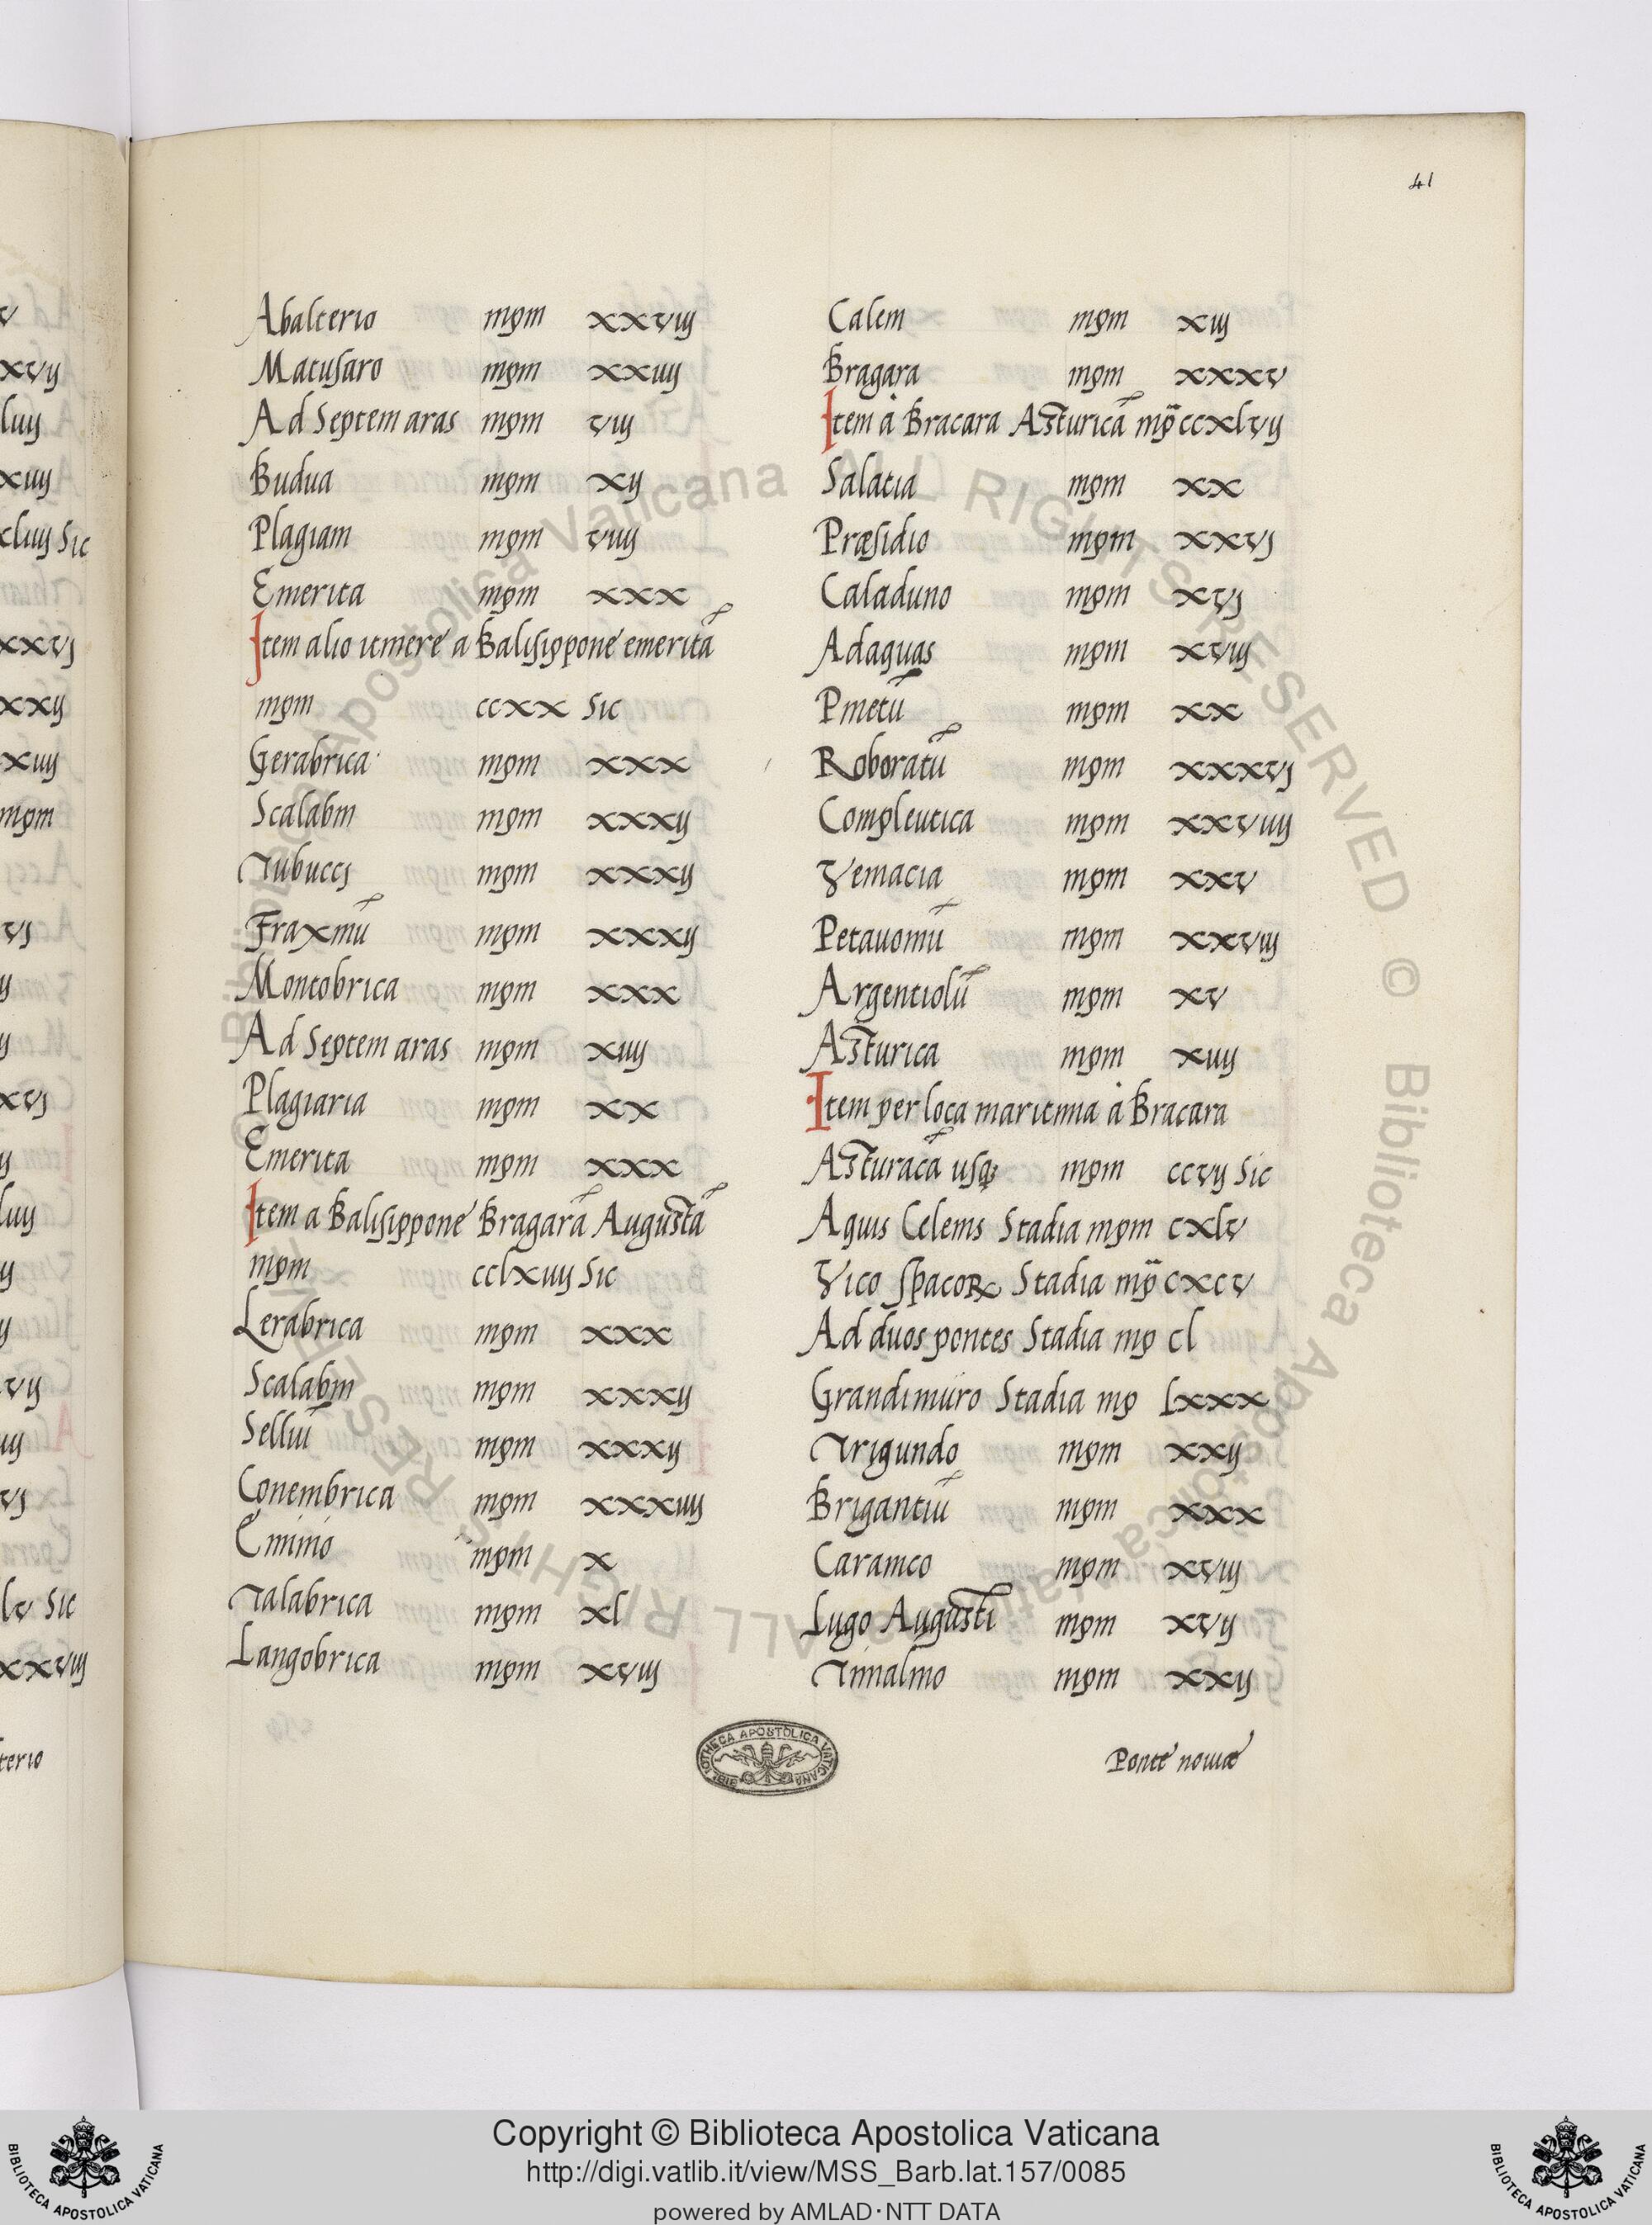 41
Abalterio mpm xxviij
Matusaro mpm xxiiij
Ad Septem aras mpm viij
Budua mpm xij
Plagiam mpm viiij
Emerita mpm xxx
Item alio itinere a Balisippone emeritã
mpm ccxx Sic
Gerabrica mpm xxx
Scalabin mpm xxxij
Tubuccj mpm xxxij
Fraxinũ mpm xxxij
Montobrica mpm xxx
Ad Septem aras mpm xiiij
Plagiaria mpm xx
Emerita mpm xxx
Item a Balisippone Bragarã Augustã
mpm cclxiiij Sic
Lerabrica mpm xxx
Scalabin mpm xxxij
Selliũ mpm xxxij
Conembrica mpm xxxiiij
Eminio mpm x
Talabrica mpm xl
Langobrica mpm xviij
Calem mpm xiij
Bragara mpm xxxv
Item à Bracara Asturicã mp̃ ccxlvij
Salatia mpm xx
Præsidio mpm xxvj
Caladuno mpm xvj
Adaquas mpm xviij
Pinetũ mpm xx
Roboratũ mpm xxxvj
Compleutica mpm xxviiij
Veniacia mpm xxv
Petauoniũ mpm xxviij
Argentiolũ mpm xv
Asturica mpm xiiij
Item per loca maritima à Bracara
Asturacã usq; mpm ccvij Sic
Aquis Celenis Stadia mpm cxlv
Vico spacoꝝ Stadia mp̃ cxcv
Ad duos pontes Stadia mp cl
Grandimiro Stadia mp lxxx
Trigundo mpm xxij
Brigantiũ mpm xxx
Caranico mpm xviij
Lugo Augusti mpm xvij
Timalino mpm xxij
Ponte nouiæ
Copyright © Biblioteca Apostolica Vaticana
http://digi.vatlib.it/view/MSS_Barb.lat.157/0085
powered by AMLAD·NTT DATA